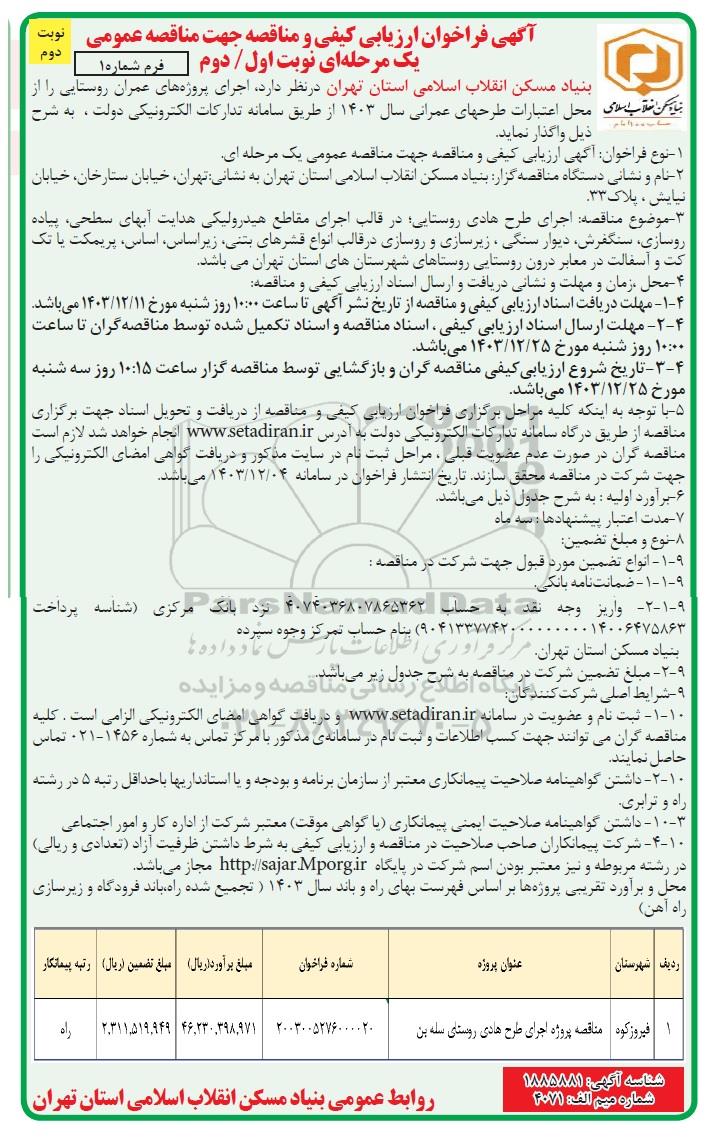 آگهی فراخوان ارزیابی کیفی و مناقصه جهت مناقصه عمومی
یک مرحله‌ای نوبت اول/ دوم
نوبت
دوم
فرم شماره۱
بنیاد مسکن انقلاب اسلامی
بنیاد مسکن انقلاب اسلامی استان تهران درنظر دارد، اجرای پروژه‌های عمران روستایی را از
محل اعتبارات طرحهای عمرانی سال ۱۴۰۳ از طریق سامانه تدارکات الکترونیکی دولت ، به شرح
ذیل واگذار نماید.
۱-نوع فراخوان: آگهی ارزیابی کیفی و مناقصه جهت مناقصه عمومی یک مرحله ای.
۲-نام و نشانی دستگاه مناقصه‌گزار: بنیاد مسکن انقلاب اسلامی استان تهران به نشانی:تهران، خیابان ستارخان، خیابان
نیایش ، پلاک۳۳.
۳-موضوع مناقصه: اجرای طرح هادی روستایی؛ در قالب اجرای مقاطع هیدرولیکی هدایت آبهای سطحی، پیاده
روسازی، سنگفرش، دیوار سنگی ، زیرسازی و روسازی درقالب انواع قشرهای بتنی، زیراساس، اساس، پریمکت یا تک
کت و آسفالت در معابر درون روستایی روستاهای شهرستان های استان تهران می باشد.
۴-محل ،زمان و مهلت و نشانی دریافت و ارسال اسناد ارزیابی کیفی و مناقصه:
۴-۱- مهلت دریافت اسناد ارزیابی کیفی و مناقصه از تاریخ نشر آگهی تا ساعت ۱۰:۰۰ روز شنبه مورخ ۱۴۰۳/۱۲/۱۱ می‌باشد.
۴-۲- مهلت ارسال اسناد ارزیابی کیفی ، اسناد مناقصه و اسناد تکمیل شده توسط مناقصه‌گران تا ساعت
۱۰:۰۰ روز شنبه مورخ ۱۴۰۳/۱۲/۲۵ می‌باشد.
۴-۳-تاریخ شروع ارزیابی‌کیفی مناقصه گران و بازگشایی توسط مناقصه گزار ساعت ۱۰:۱۵ روز سه شنبه
مورخ ۱۴۰۳/۱۲/۲۵ می‌باشد.
۵-با توجه به اینکه کلیه مراحل برگزاری فراخوان ارزیابی کیفی و مناقصه از دریافت و تحویل اسناد جهت برگزاری
مناقصه از طریق درگاه سامانه تدارکات الکترونیکی دولت به آدرس www.setadiran.ir انجام خواهد شد لازم است
مناقصه گران در صورت عدم عضویت قبلی ، مراحل ثبت نام در سایت مذکور و دریافت گواهی امضای الکترونیکی را
جهت شرکت در مناقصه محقق سازند. تاریخ انتشار فراخوان در سامانه ۱۴۰۳/۱۲/۰۴ می‌باشد.
۶-برآورد اولیه : به شرح جدول ذیل می‌باشد.
۷-مدت اعتبار پیشنهادها : سه ماه
۸-نوع و مبلغ تضمین:
۹-۱- انواع تضمین مورد قبول جهت شرکت در مناقصه :
۹-۱-۱- ضمانت‌نامه بانکی.
۹-۱-۲- واریز وجه نقد به حساب ۴۰۷۴۰۳۶۸۰۷۸۶۵۳۶۲ نزد بانک مرکزی (شناسه پرداخت
۹۰۴۱۳۳۷۷۴۲۰۰۰۰۰۰۰۰۰۰۱۴۰۰۶۴۷۵۸۶۳) بنام حساب تمرکز وجوه سپرده
بنیاد مسکن استان تهران.
۹-۲- مبلغ تضمین شرکت در مناقصه به شرح جدول زیر می‌باشد.
۹-شرایط اصلی شرکت‌کنندگان:
۱۰-۱- ثبت نام و عضویت در سامانه www.setadiran.ir و دریافت گواهی امضای الکترونیکی الزامی است . کلیه
مناقصه گران می توانند جهت کسب اطلاعات و ثبت نام در سامانه‌ی مذکور با مرکز تماس به شماره ۱۴۵۶-۰۲۱ تماس
حاصل نمایند.
۱۰-۲- داشتن گواهینامه صلاحیت پیمانکاری معتبر از سازمان برنامه و بودجه و یا استانداریها باحداقل رتبه ۵ در رشته
راه و ترابری.
۱۰-۳- داشتن گواهینامه صلاحیت ایمنی پیمانکاری (یا گواهی موقت) معتبر شرکت از اداره کار و امور اجتماعی
۱۰-۴- شرکت پیمانکاران صاحب صلاحیت در مناقصه و ارزیابی کیفی به شرط داشتن ظرفیت آزاد (تعدادی و ریالی)
در رشته مربوطه و نیز معتبر بودن اسم شرکت در پایگاه http://sajar.Mporg.ir مجاز می‌باشد.
محل و برآورد تقریبی پروژه‌ها بر اساس فهرست بهای راه و باند سال ۱۴۰۳ ( تجمیع شده راه،باند فرودگاه و زیرسازی
راه آهن)
ردیف شهرستان عنوان پروژه شماره فراخوان مبلغ برآورد(ریال) مبلغ تضمین (ریال) رتبه پیمانکار
۱ فیروزکوه مناقصه پروژه اجرای طرح هادی روستای سله بن ۲۰۰۳۰۰۵۲۷۶۰۰۰۰۲۰ ۴۶,۲۳۰,۳۹۸,۹۷۱ ۲,۳۱۱,۵۱۹,۹۴۹ راه
شناسه آگهی: ۱۸۸۵۸۸۱
شماره میم الف: ۴۰۷۱
روابط عمومی بنیاد مسکن انقلاب اسلامی استان تهران
ParsNamadData
مرکز فرآوری اطلاعات پارس نماد داده ها
پایگاه اطلاع رسانی مناقصه و مزایده
۰۲۱-۸۸۳۴۹۶۷۰-۵